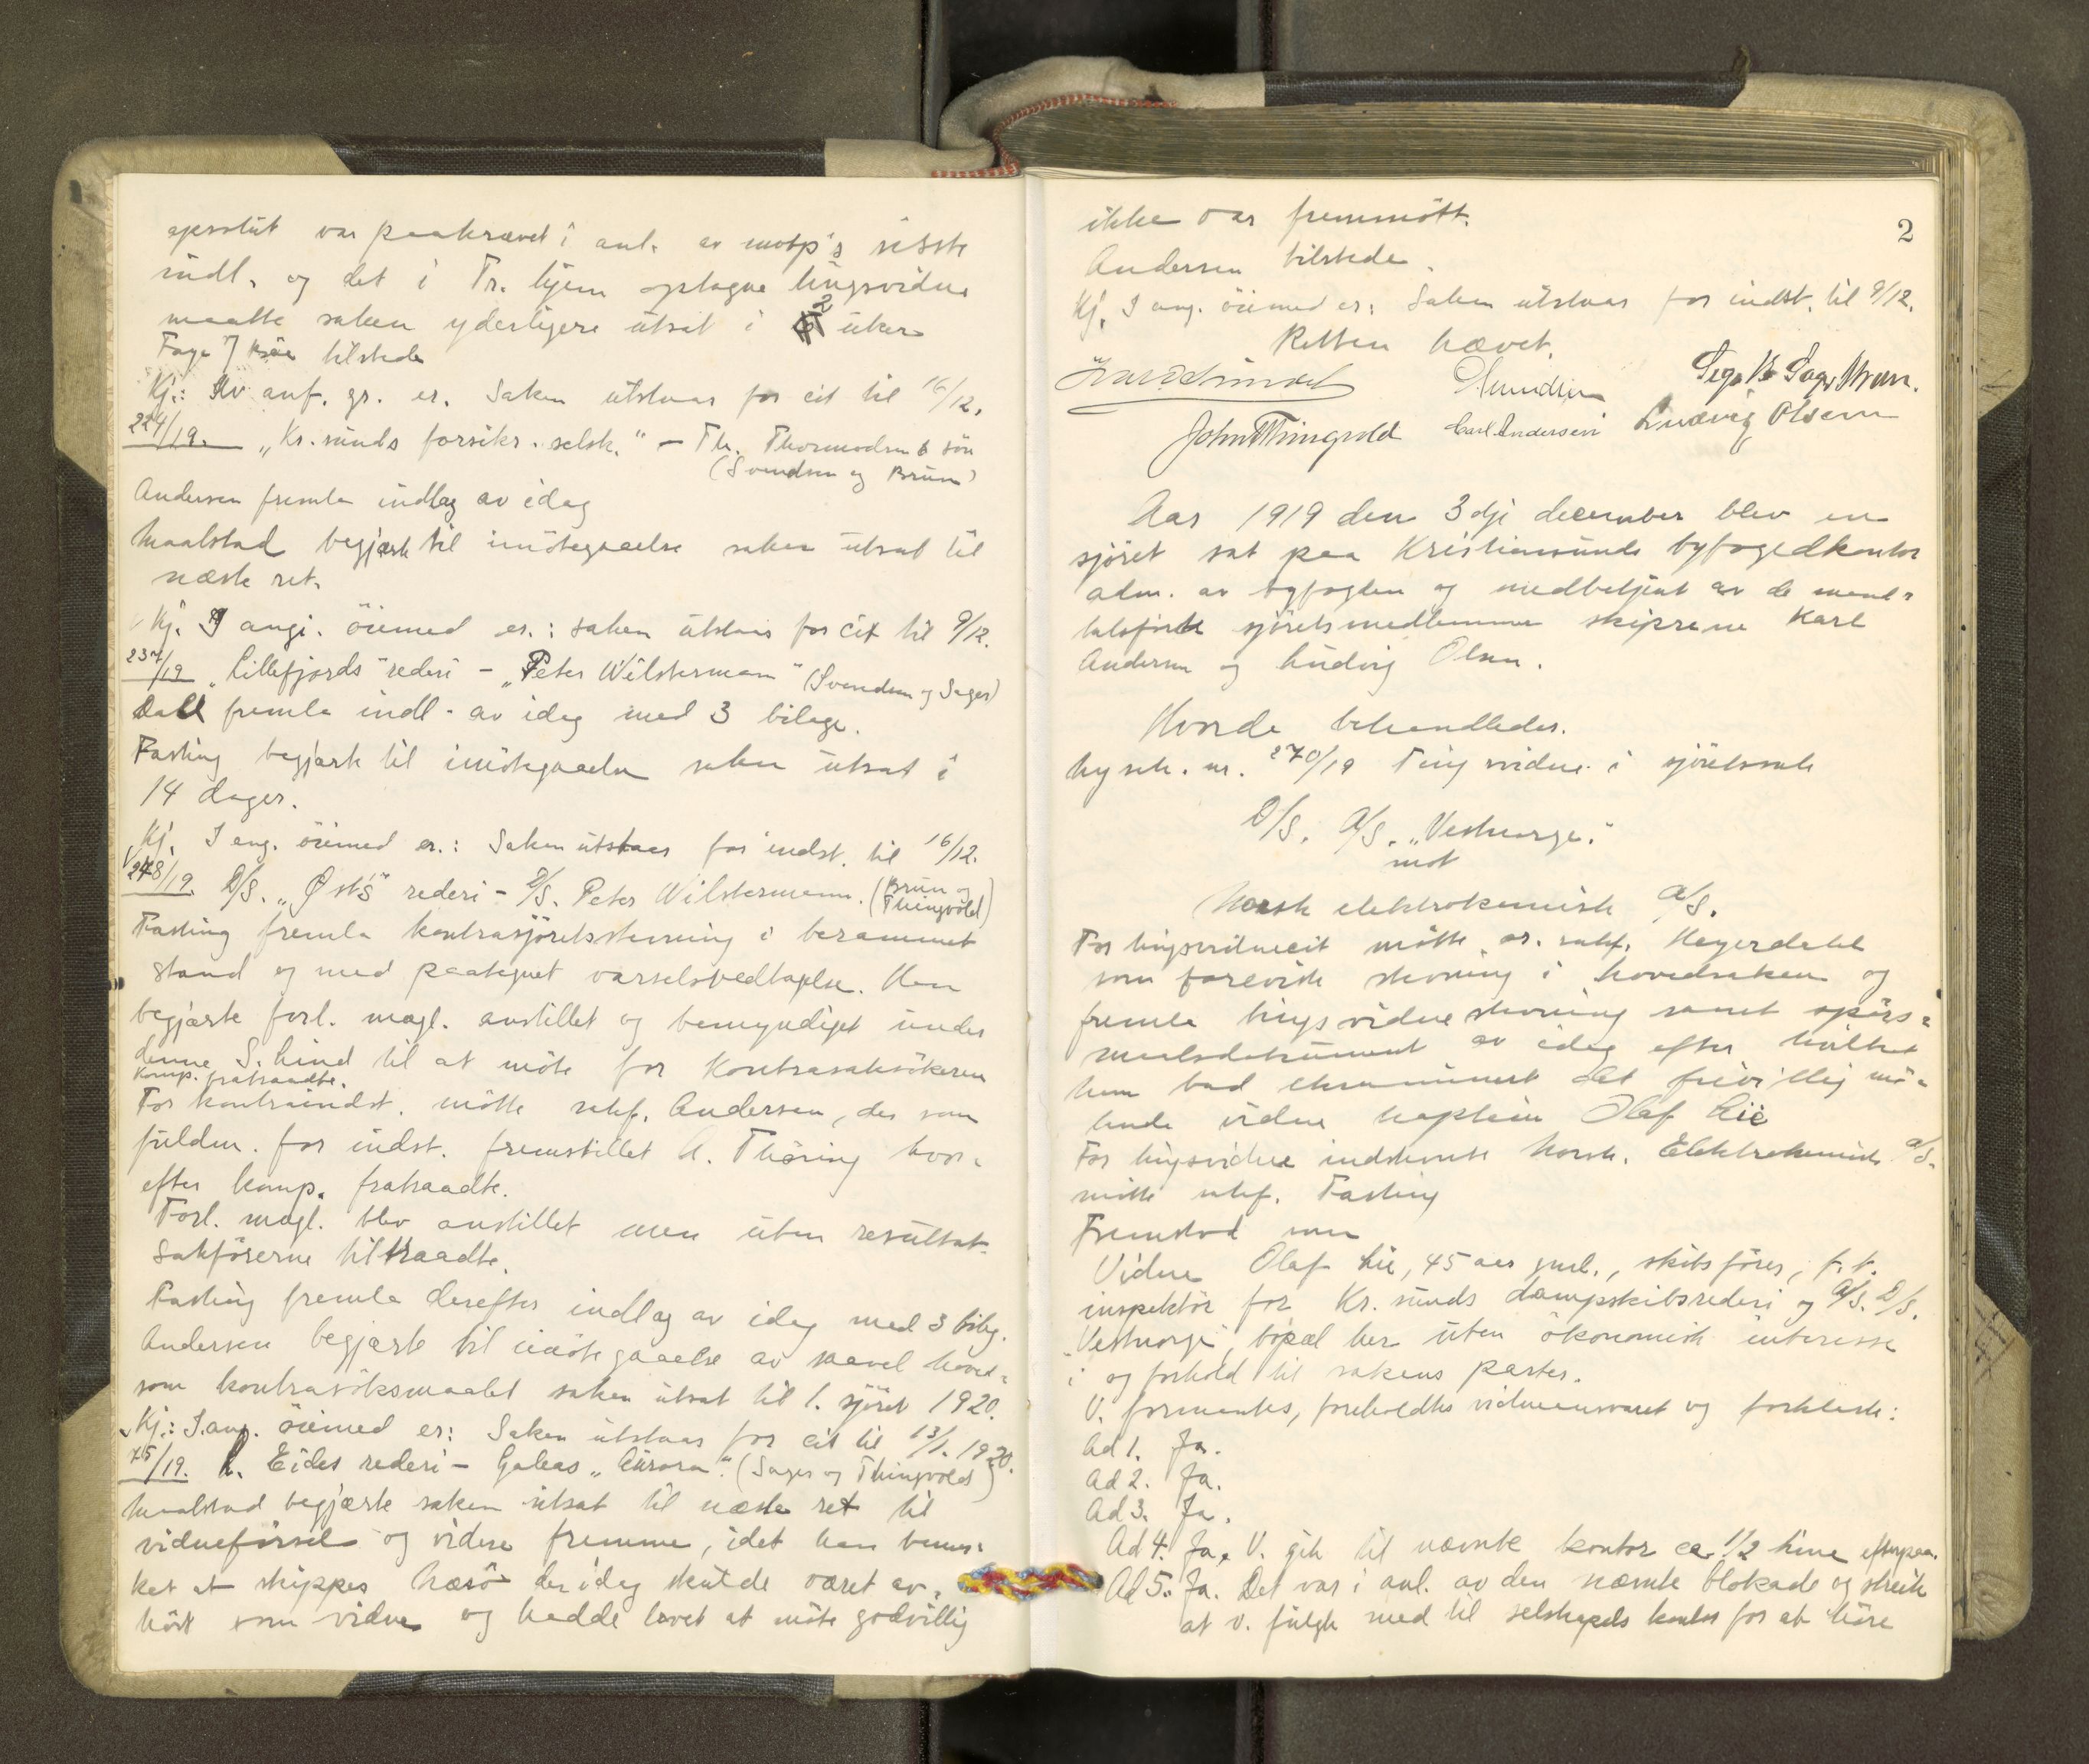 var paakrævet i anl. av motp's sisste
indl. og det i Tr. hjem optagne tingsvidne
maatte saken yderligere utsat i 2 uker
tilstede
Kj.: Av anf. gr. er. Saken utstaar for cit til 16/12.
224/19. „Kr.sunds forsikr.selsk." - Th. Thormodsen & sön
(Svendsen og Brun)
Andersen fremla indlæg av idag
Maalstad begjærte til imötegaaelse saken utsat til
næste ret.
Kj. I angi. öiemed er.: Saken utstaar for cit til 9/12.
237/19 „Lillefjords" rederi - „Peter Wilstermann" (Svendsen og Sager)
Dall fremla indl. av idag med 3 bilage.
Fasting begjærte til imötegaaelse saken utsat i
14 dager.
Kj. I ang. öiemed er.: Saken utstaar for indst. til 16/12.
248/19. D/S. „Øst's" rederi - D/S. Peter Wilstermann. (Brun og
Thingvold)
Fasting fremla kontrasjöretsstevning i berammet
stand og med paategnet varselsvedtagelse. Han
begjærte forl. mægl. anstillet og bemyndiget under
denne S. Lind til at möte for Kontrasaksökeren
Komp. fratraadte.
For kontraindst. mötte sakf. Andersen, der som
fuldm. for indst. fremstillet A. Thöring hvor-
efter komp. fratraadte.
Forl. mægl. blev anstillet men uten resultat.
Sakförerne tiltraadte.
Fasting fremla derefter indlæg av idag med 3 bilag.
Andersen begjærte til imötegaaelse av saavel hoved-
som kontrasöksmaalet saken utsat til 1. sjöret 1920.
Kj.: I ang. öiemed er: Saken utstaar for cit til 13/1. 1920.
Eides rederi - Galeas „Aurora". (Sager og Thingvold)
Maalstad begjærte saken utsat til næste ret til
vidneförsel og videre fremme, idet han bemer-
ket at skipper Næsö der idag skulde været av-
hört som vidne og hadde lovet at möte godvillig
2
ikke var fremmött.
Andersen tilstede.
Kj. I ang. öiemed er: Saken utstaar for indst. til 9/12.
Retten hævet.
John Thingvold Carl Andersen Ludvig Olsen
Aar 1919 den 3dje december blev en
sjöret sat paa Kristiansunds byfogedkontor
adm. av byfogden og medbetjent av de mand-
talsförte sjöretsmedlemmer skipperne Karl
Andersen og Ludvig Olsen.
Hvorda behandledes.
Ny sak. nr. 270/19 Tingsvidne i sjöretssak
D/S. A/S. „Vestnorge."
mot
Norsk elektrokemisk A/S.
For tingsvidnecit mötte or. sakf. Heyerdahl
som foreviste stevning i hovedsaken og
fremla tingsvidnestevning samt spörs-
maalsdokument av idag efter hvilket
han bad eksaminert det frivillig mö-
tende vidne kaptein Olaf Lie
For tingsvidne indstevnte Norsk. Elektrokemisk A/S.
mötte sakf. Fasting
Fremstod som
Vidne Olaf Lie, 45 aar gml., skibsförer, f.t.
inspektör for Kr.sunds dampskibsrederi og A/S. D/S.
„Vestnorge", bopæl her uten ökonomisk interesse
i og forhold til sakens parter.
V. formantes, foreholdtes vidneansvaret og forklarte:
Ad 1. Ja.
Ad 2. Ja.
Ad 3. Ja.
Ad 4. Ja. V. gik til nævnte kontor ca. 1/2 time efterpaa.
Ad 5. Ja. Det var i anl. av den nævnte blokade og streik
at v. fulgte med til selskapets kontor for at höre